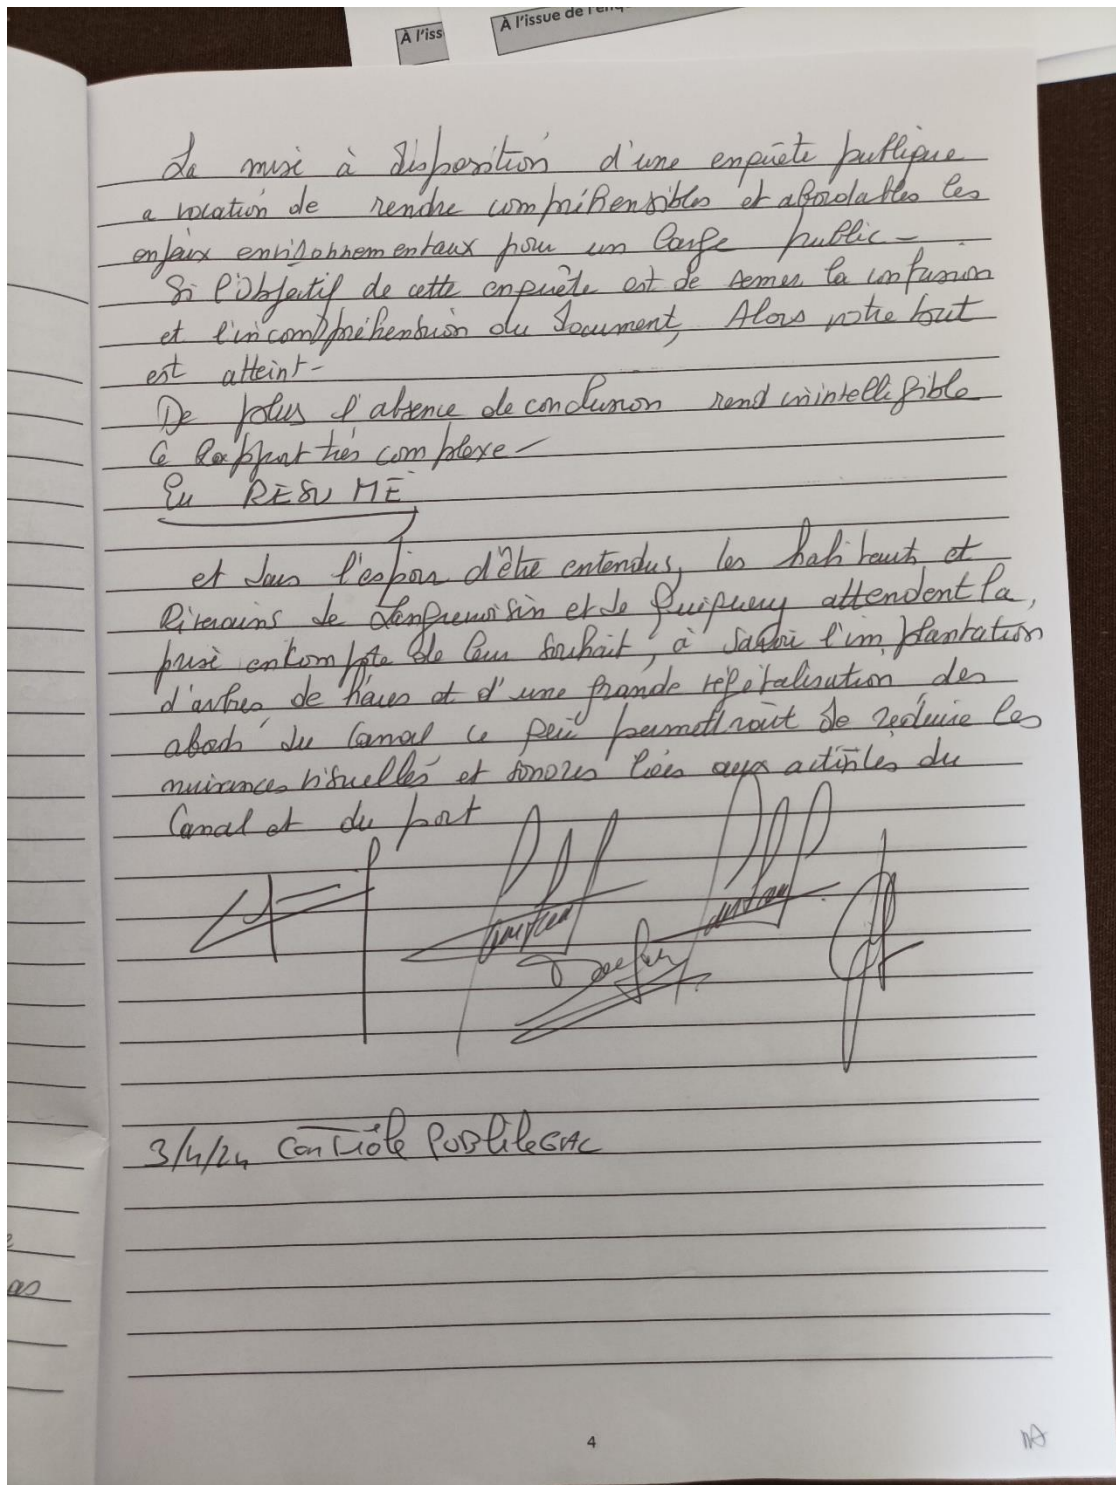 À l'iss
À l'issue de l'enq
La mise à disposition d'une enquête publique
a vocation de rendre compréhensibles et abordables les
enjeux environnementaux pour un large public -
Si l'objectif de cette enquête est de semer la confusion
et l'incompréhension du document, Alors votre but
est atteint -
De plus l'absence de conclusion rend inintelligible
Ce Rapport très complexe -
En RESUMÉ
et dans l'espoir d'être entendus, les habitants et
Riverains de Languevoisin et de Quiquery attendent la
prise en compte de leur souhait, à savoir l'implantation
d'arbres de haies et d'une grande végétalisation des
abords du Canal ce qui permettrait de réduire les
nuisances visuelles et sonores liées aux activités du
Canal et du port
3/4/24 Contrôle PUBliLEGAL
as
4